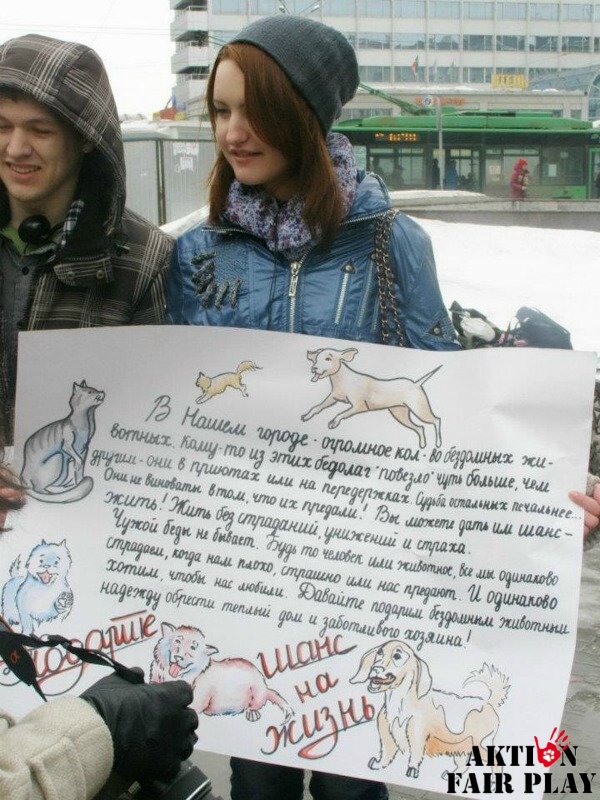 В Нашем городе - огромное кол-во бездомных жи-
вотных. Кому-то из этих бедолаг "повезло" чуть больше, чем
другим - они в приютах или на передержках. Судьба остальных печальнее...
Они не виноваты в том, что их предали! Вы можете дать им шанс -
жить! Жить без страданий, унижений и страха.
Чужой беды не бывает. Будь то человек или животное, все мы одинаково
страдаем, когда нам плохо, страшно или нас предают. И одинаково
хотим, чтобы нас любили. Давайте подарим бездомным животным
надежду обрести теплый дом и заботливого хозяина!
Подарите
шанс
на
жизнь
AKTION
FAIR PLAY